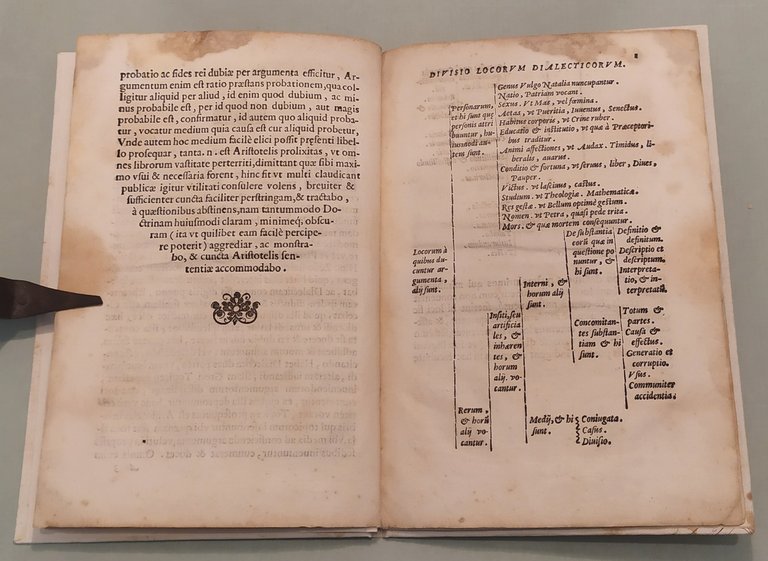 probatio ac fides rei dubiæ per argumenta efficitur, Ar-
gumentum enim est ratio præstans probationem, qua col-
ligitur aliquid per aliud, id enim quod dubium, ac mi-
nus probabile est, per id quod non dubium, aut magis
probabile est, confirmatur, id autem quo aliquid proba-
tur, vocatur medium quia causa est cur aliquid probetur,
Vnde autem hoc medium facilè elici possit præsenti libel-
lo prosequar, tanta. n. est Aristotelis prolixitas, vt om-
nes librorum vastitate perterriti, dimittant quæ sibi maxi-
mo vsui & necessaria forent, hinc fit vt multi claudicant
publicæ igitur vtilitati consulere volens, breuiter &
sufficienter cuncta faciliter perstringam, & tractabo,
à quæstionibus abstinens, nam tantummodo Do-
ctrinam huiusmodi claram, minimeq; obscu-
ram (ita vt quilibet eam facilè percipe-
re poterit) aggrediar, ac monstra-
bo, & cuncta Aristotelis sen-
tentiæ accommodabo.
DIVISIO LOCORVM DIALECTICORVM.
Locorum à
quibus du-
cuntur ar-
gumenta,
alij sunt.
Personarum,
et hi sunt qui
personis attri
buuntur, hu-
iusmodi au-
tem sunt.
Genus Vulgo Natalia nuncupantur.
Natio, Patriam vocant.
Sexus. Vt Mas, vel fœmina.
Aetas, vt Pueritia, Iuuentus, Senectus.
Habitus corporis, vt Crine ruber.
Educatio & institutio, vt qua à Præceptori-
bus traditur.
Animi affectiones, vt Audax. Timidus, li-
beralis, auarus.
Conditio & fortuna, vt seruus, liber, Diues,
Pauper.
Victus. vt lasciuus, castus.
Studium. vt Theologiæ. Mathematicæ.
Res gestæ. vt Bellum optimè gestum.
Nomen. vt Petra, quasi pede trita.
Mors. & quæ mortem consequuntur.
Rerum,
& horũ
alij vo-
cantur.
Insiti, seu
artificia
les, &
inhæren
tes, &
horum
alij vo-
cantur.
Interni, &
horum alij
sunt.
De substantia
eorũ quæ in
questione po
nuntur, &
hi sunt.
Definitio &
definitum.
Descriptio et
descriptum.
Interpreta-
tio, & in-
terpretatũ.
Concomitan-
tes substan-
tiam & hi
sunt.
Totum &
partes.
Causa &
effectus.
Generatio et
corruptio.
Vsus.
Communiter
accidentia.
Medij, & hi
sunt.
Coniugata.
Casus.
Diuisio.